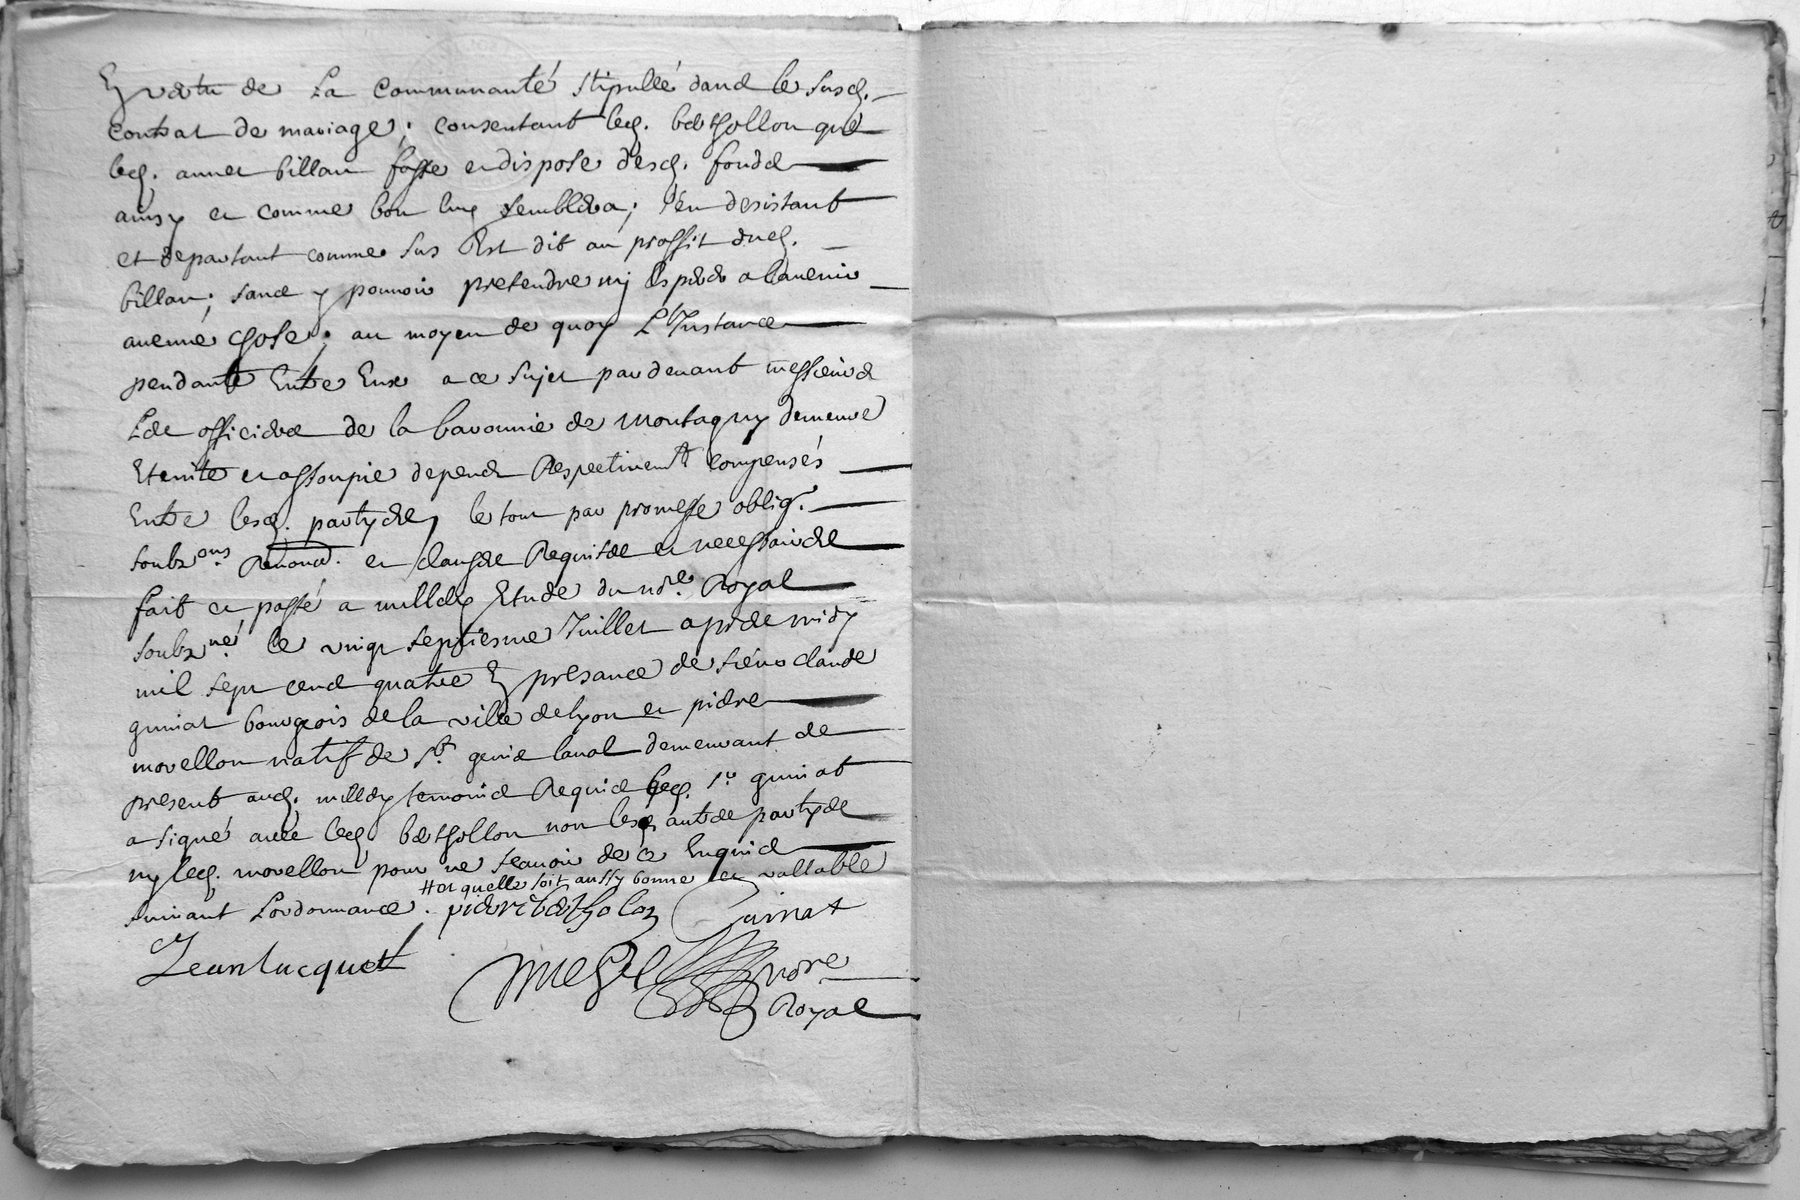 En vertu de La Communauté stipullée dans le susd.
contrat de mariage; consentant led. berthollon que
led. annet billan fasse et dispose desd. fonds
ainsy et comme bon luy semblera; s'en desistant
et departant comme sus Est dit au proffit dud.
billan; sans y pouvoir pretendre ny Esperer a l'avenir
aucune chose; au moyen de quoy L'Instance
pendante Entre Eux a ce sujet pardevant messieurs
Les officiers de la baronnie de montagny demeure
Eteinte et assoupie depens Respectivemt compensés
Entre lesd. partyes, le tout par promesse oblig.
soubzons Renond. et clauses Requises et necessaires
fait et passé a millery Etude du nore Royal
soubzné le vingt septiesme Juillet apres midy
mil sept cens quatre En presance de sieur claude
guinat bourgeois de la ville de lyon et pierre
morellon natif de st genis laval demeurant de
present aud. millery temoins Requis led. sr guinat
a signé avec led. berthollon non lesd. autres partyes
ny led. morellon pour ne scavoir de ce Enquis
# et quelle soit aussy bonne et vallable
suivant Lordonnance. pierre bertholon Guinat
Jean lucquet
nore
Royal